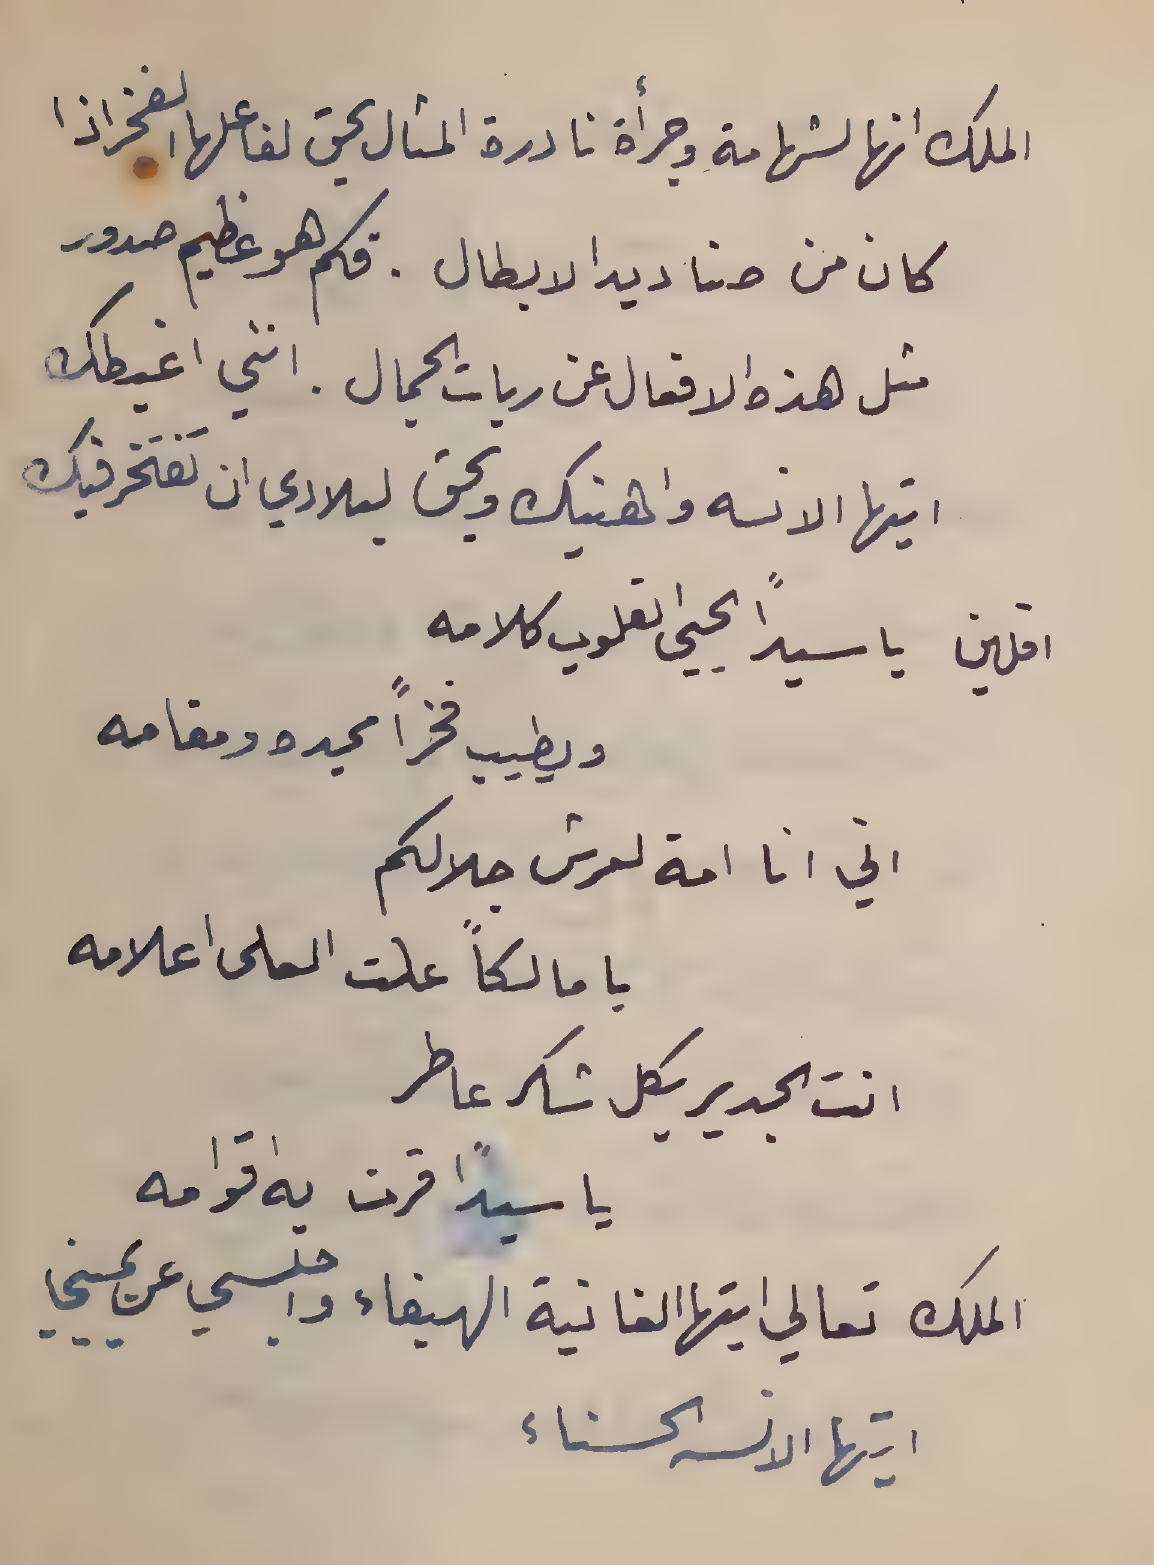 الملك انها لشهامة وجرأة نادرة المثال يحق لفاعلها الفخر اذا
كان من صناديد الابطال . فكم هو عظيم صدور
مثل هذه الافعال عن ربات الجمال . انني اغبطك
ايتها الانسه واهنيك ويحق لبلادي ان تفتخر فيك
افلين يا سيداً يحيي القلوب كلامه
ويطيب فخراً مجده ومقامه
اني انا امة لعرش جلالكم
يا مالكاً علت العلى اعلامه
انت الجدير بكل شكر عاطر
يا سيداً قرت به اقوامه
الملك تعالي ايتها الغانية الهيفاء واجلسي عن يميني
ايتها الانسه الحسناء